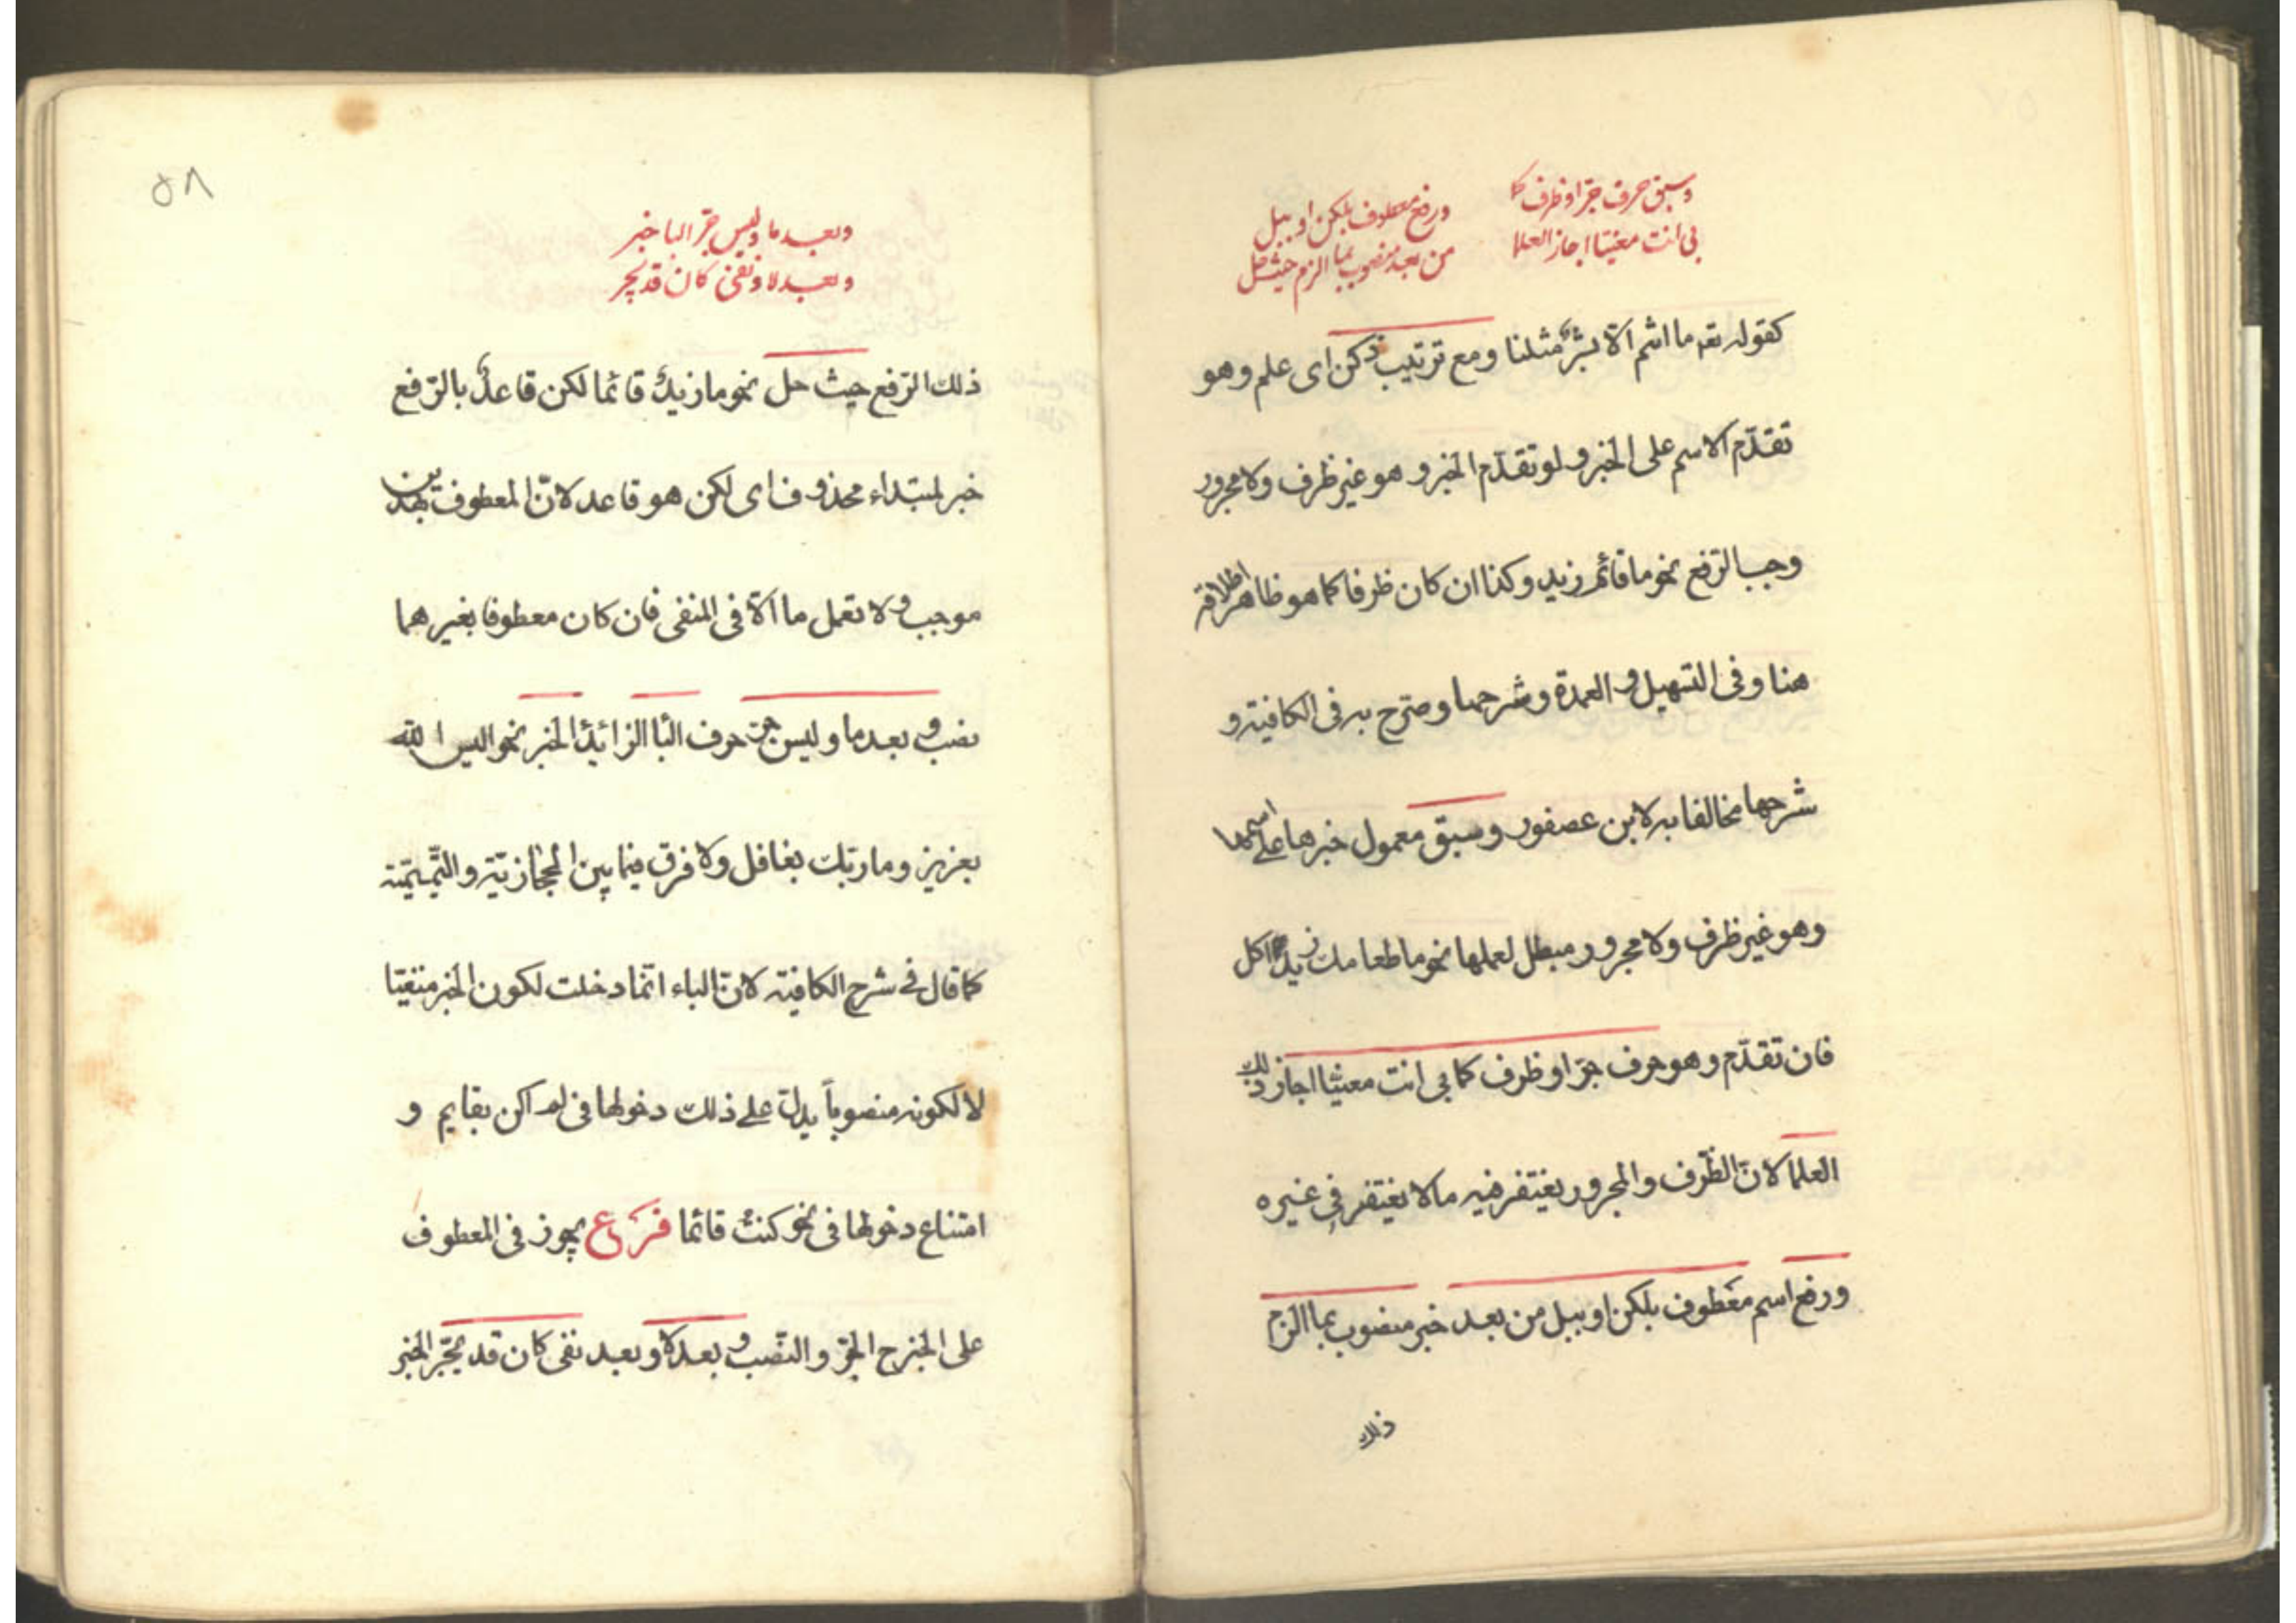 وسبق حرف جرّ او ظرف كما
بى انت معنيّا اجاز العلما
ورفع معطوف بلكن او ببل
من بعد منصوب بما الزم حيث حل
كقوله تعه ما انتم الّا بشرٌ مثلنا ومع ترتيب زكن اى علم وهو
تقدّم الاسم على الخبر ولو تقدّم الخبر و هو غير ظرف ولا مجرور
وجب الرّفع نحو ما قائم زيد وكذا ان كان ظرفا كما هو ظاهر اطلاقه
هنا وفى التسهيل و العمدة وشرحهما وصرّح به فى الكافية و
شرحها مخالفا به لابن عصفور وسبق معمول خبرها على اسمها
وهو غير ظرف ولا مجرور مبطل لعملها نحو ما طعامك زيدٌ اكل
فان تقدّم وهو حرف جرّ او ظرف كما بى انت معنيّا اجاز ذلك
العلما لانّ الظّرف والمجرور يغتفر فيه ما لا يغتفر فى غيره
ورفع اسم معطوف بلكن او ببل من بعد خبر منصوب بما الزم
ذلك
٥٨
وبعد ما وليس جرّ البا خبر
وبعد لا ونفى كان قد يجر
ذلك الرّفع حيث حل نحو ما زيدٌ قائما لكن قاعدٌ بالرّفع
خبر لمبتداء محذوف اى لكن هو قاعد لانّ المعطوف بهذين
موجب ولا تعمل ما الّا فى المنفى فان كان معطوفا بغيرهما
نصب و بعد ما و ليس جرّ حرف البا الزائدُ الخبر نحو اليس الله
بعزيز وما ربّك بغافل ولا فرق فيما بين الحجازيّة والتّميميّة
كما قال فى شرح الكافية لانّ الباء انّما دخلت لكون الخبر منفيّا
لا لكونه منصوباً يدلّ على ذلك دخولها فى لم اكن بقايم و
امتناع دخولها فى نحو كنتُ قائما فرع يجوز فى المعطوف
على الخبر ح الجرّ و النّصب و بعد لا و بعد نفى كان قد يجرّ الخبر